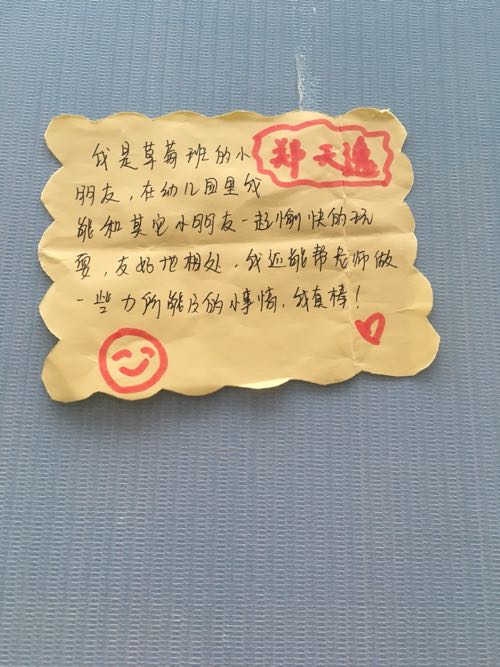 我是草莓班的小
郑天逸
朋友，在幼儿园里我
能和其它小朋友一起愉快的玩
耍，友好地相处，我还能帮老师做
一些力所能及的事情，我真棒！